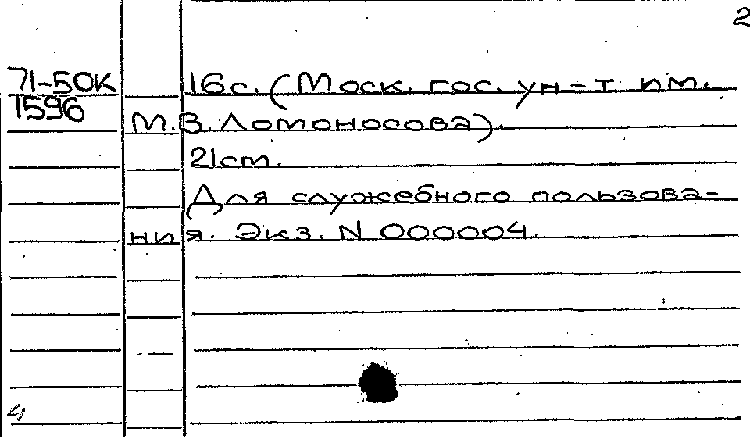 2
71-50К 16с. (Моск. гос. ун-т им.
1596 М.В. Ломоносова).
21cm.
Для служебного пользова-
ния. Экз. N 000004.